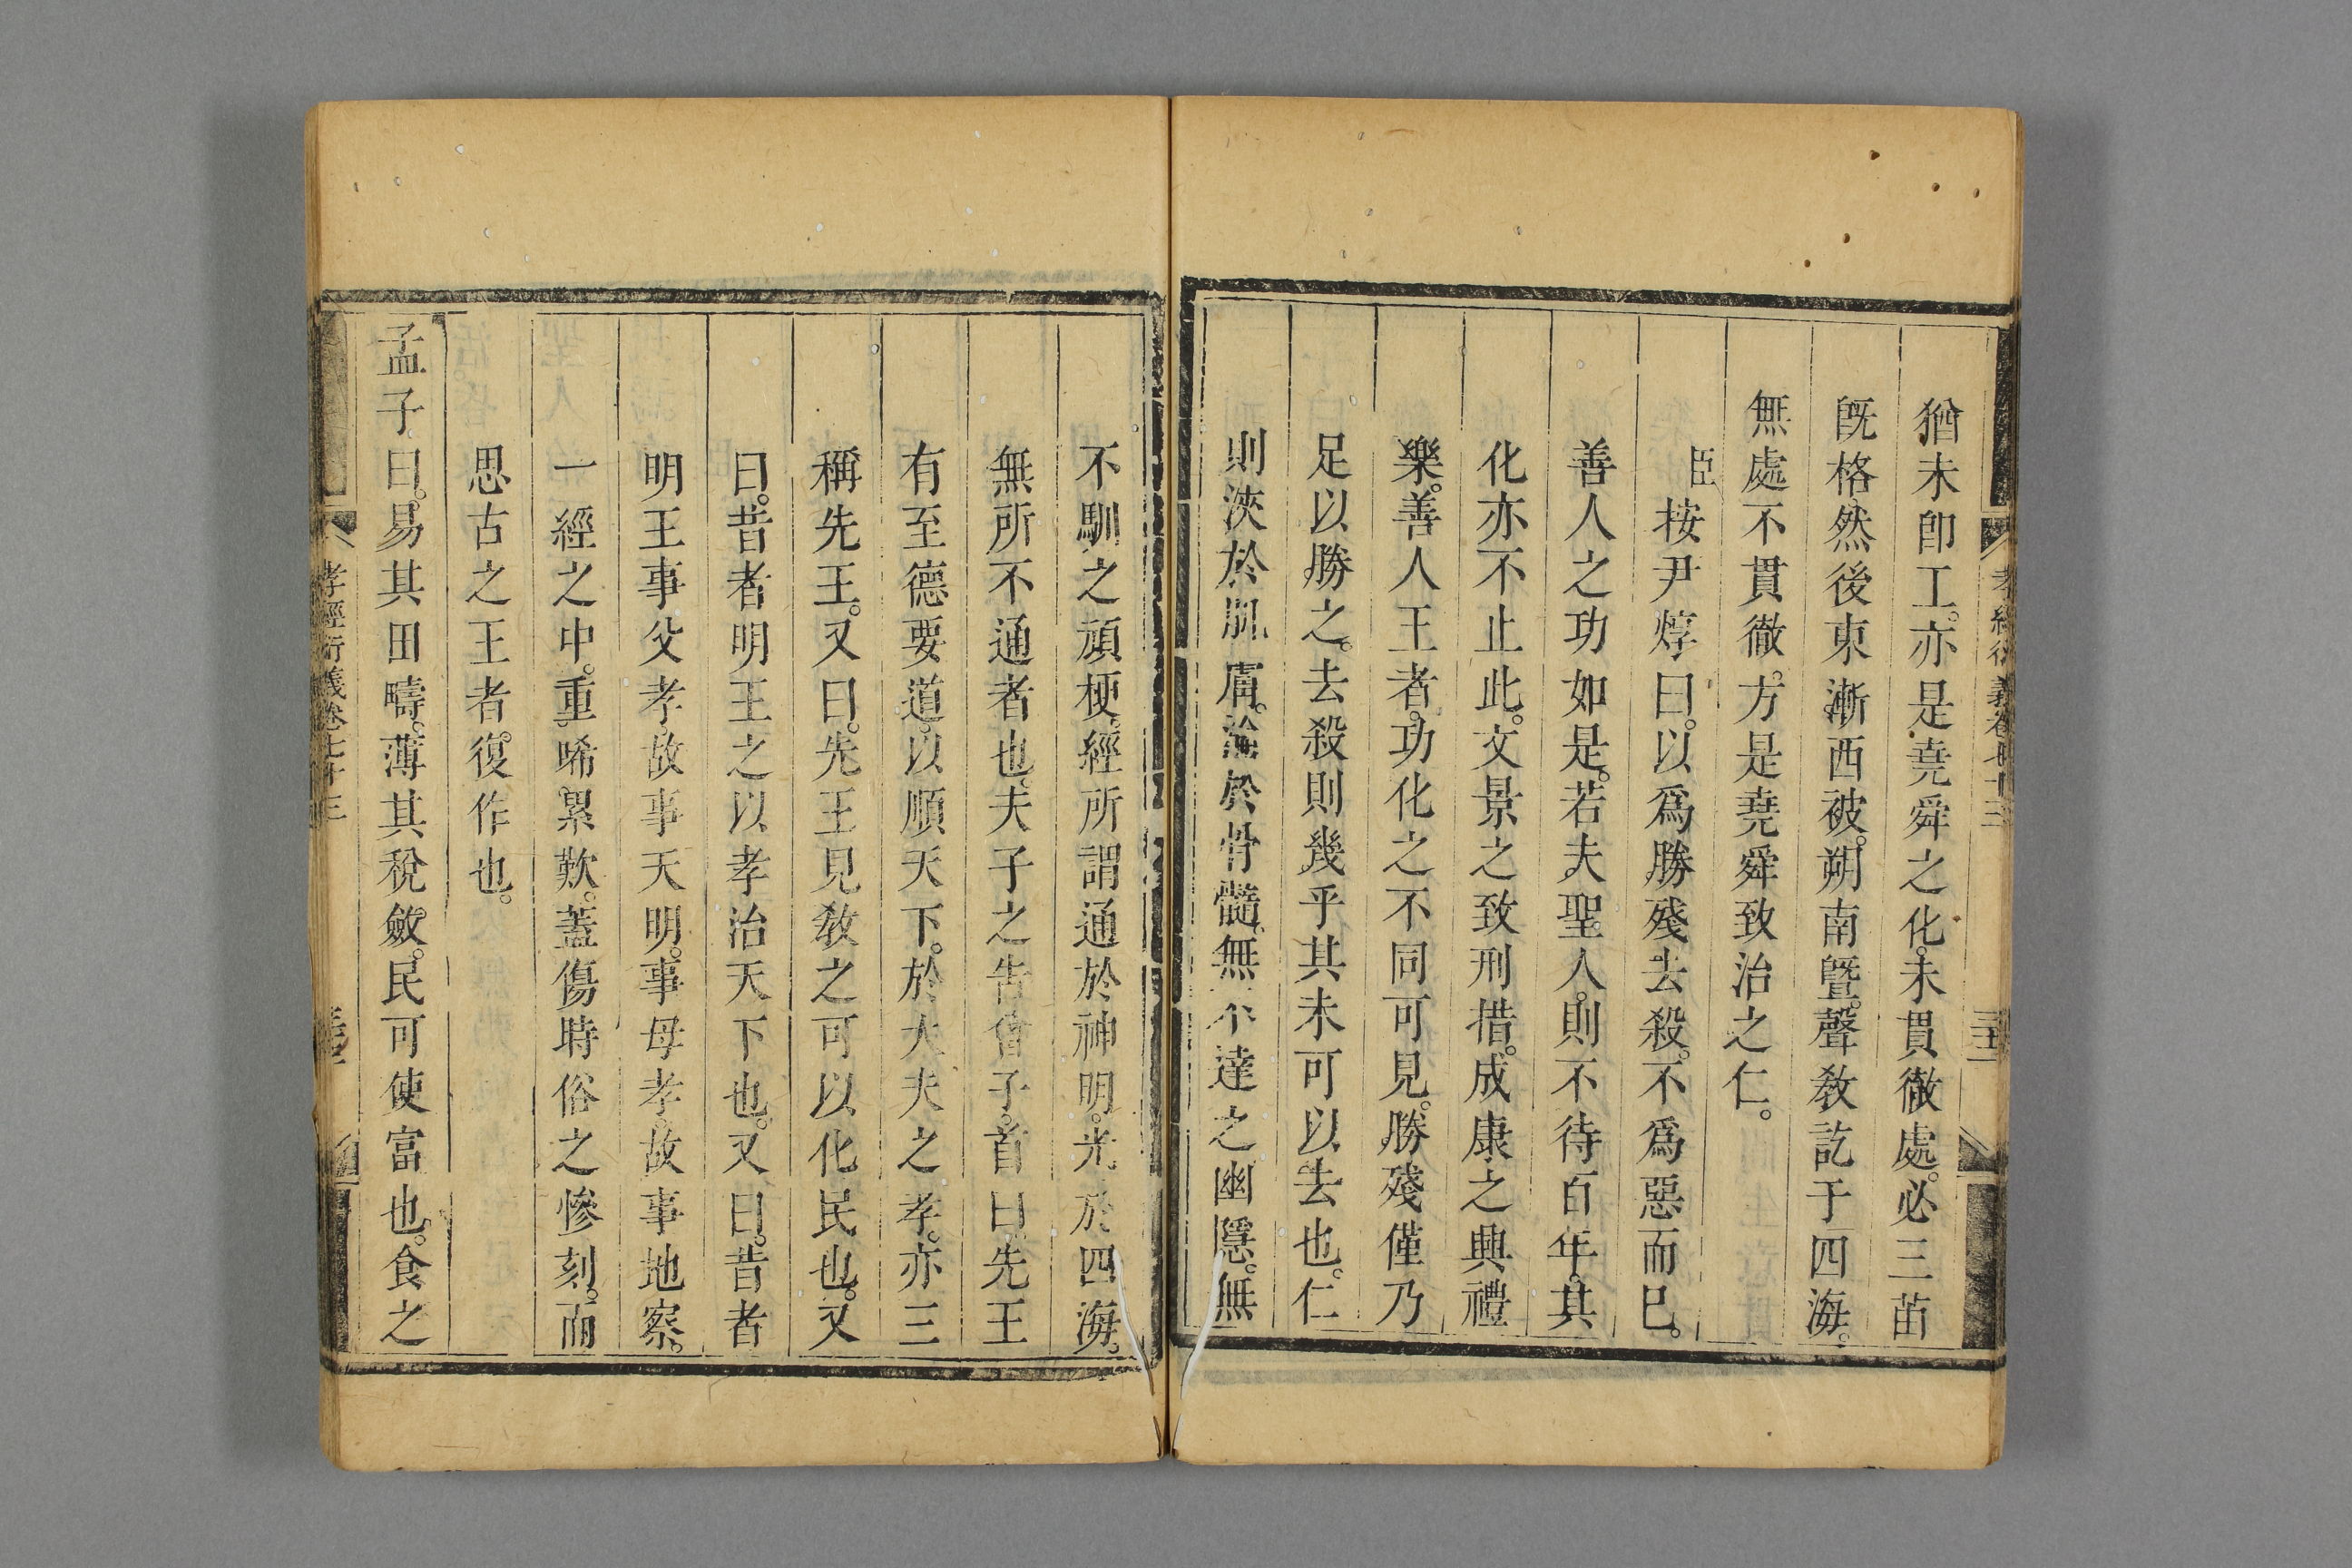 猶未卽工。亦是堯舜之化。未貫徹處。必三苗
旣格。然後東漸西被。朔南曁。聲敎訖于四海。
無處不貫徹。方是堯舜致治之仁。
臣按尹焞曰。以爲勝殘去殺。不爲惡而已。
善人之功如是。若夫聖人。則不待百年。其
化亦不止此。文景之致刑措。成康之興禮
樂。善人王者。功化之不同可見。勝殘僅乃
足以勝之。去殺則幾乎其未可以去也。仁
則浹於肌膚。淪於骨髓。無不達之幽隱。無
不馴之頑梗。經所謂通於神明。光於四海。
無所不通者也。夫子之告曾子。首曰。先王
有至德要道。以順天下。於大夫之孝。亦三
稱先王。又曰。先王見敎之可以化民也。又
曰。昔者明王之以孝治天下也。又曰。昔者
明王事父孝。故事天明。事母孝。故事地察。
一經之中。重晞累歎。蓋傷時俗之慘刻。而
思古之王者。復作也。
孟子曰。易其田疇。薄其稅斂。民可使富也。食之
孝經衍義卷七十三